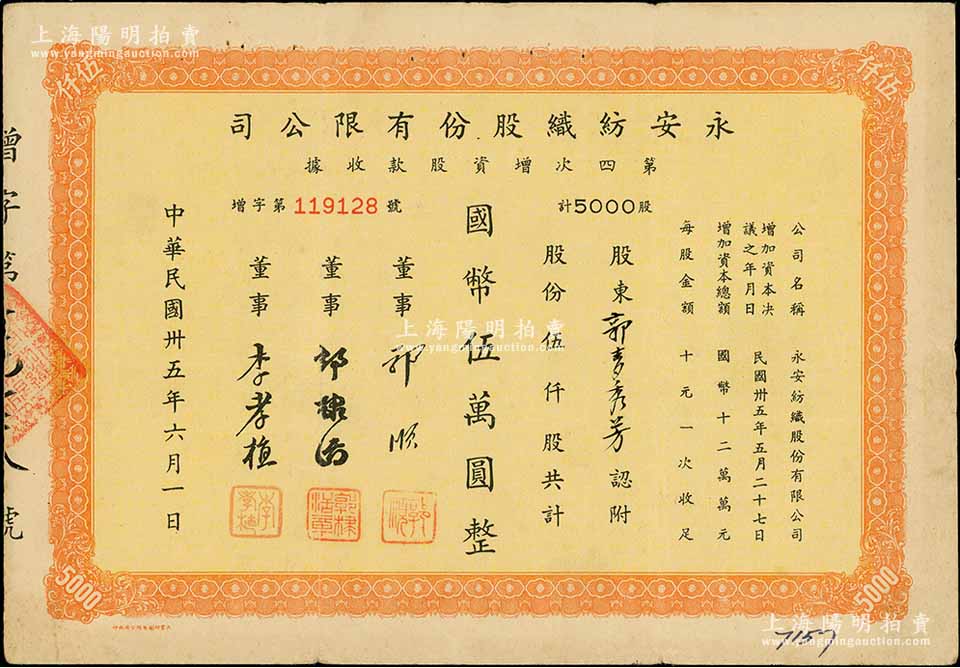 永安紡織股份有限公司
第四次增資股款收據
計5000股
增字第119128號
公司名稱 永安紡織股份有限公司
增加資本決議之年月日 民國卅五年五月二十七日
增加資本總額 國幣十二萬萬元
每股金額 十元一次收足
股東郭麥秀芳認附
股份伍仟股共計
國幣伍萬圓整
董事 郭順
董事 郭棣活
董事 李孝植
中華民國卅五年六月一日
伍仟
伍仟
5000
5000
增字第
號
7157
上海陽明拍賣
www.yangmingauction.com
上海陽明拍賣
www.yangmingauction.com
上海陽明拍賣
www.yangmingauction.com